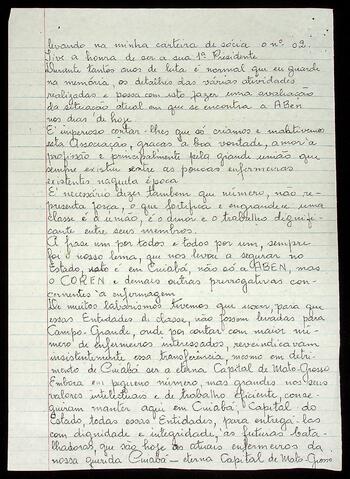 levando na minha carteira de sócia o nº 02.
Tive a honra de ser a sua 1ª Presidente
Durante tantos anos de luta é normal que eu guarde
na memória, os detalhes das várias atividades
realizadas e possa com isto fazer uma avaliação
da situação atual em que se encontra a ABEn
nos dias de hoje
É imperioso contar-lhes que só criamos e mantivemos
esta Associação, graças a boa vontade, amor a
profissão e principalmente pela grande união que
sempre existiu entre as poucas enfermeiras
existentes naquela época
É necessário dizer também que número, não re-
presenta força, o que fortifica e engrandece uma
classe é a união, é o amor e o trabalho dignifi-
cante entre seus membros.
A frase um por todos e todos por um, sempre
foi nosso lema, que nos levou a segurar no
Estado, isto é em Cuiabá, não só a ABEN, mas
o COREN e demais outras prerrogativas con-
cernentes a enfermagem
De muito laborismo tivemos que usar para que
essas Entidades di classe, não fossem levadas para
Campo-Grande, onde por contar com maior nú-
mero de enfermeiros interessados, reevindicavam
insistentemente essa transferência, mesmo em detri-
mento de Cuiabá ser a eterna Capital de Mato-Grosso
Embora em pequeno número, mas grandes nos seus
valores intelectuais e de trabalho eficiente, conse-
guiram manter aqui em Cuiabá, Capital do
Estado, todas essas Entidades, para entregá-las
com dignidade e integridade, as futuras bata-
lhadoras, que são hoje as atuais enfermeiras da
nossa querida Cuiabá - eterna Capital de Mato-Grosso